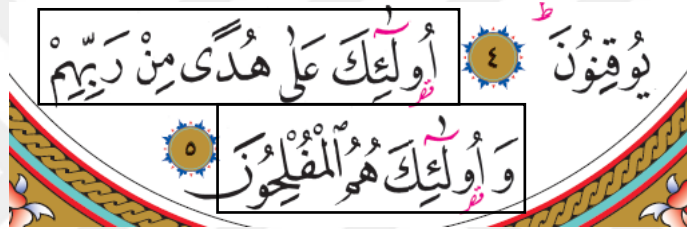 يُوقِنُونَ ۙ ﴿٤﴾ اُولٰٓئِكَ عَلٰى هُدًى مِنْ رَبِّهِمْ
وَاُولٰٓئِكَ هُمُ الْمُفْلِحُونَ ﴿٥﴾